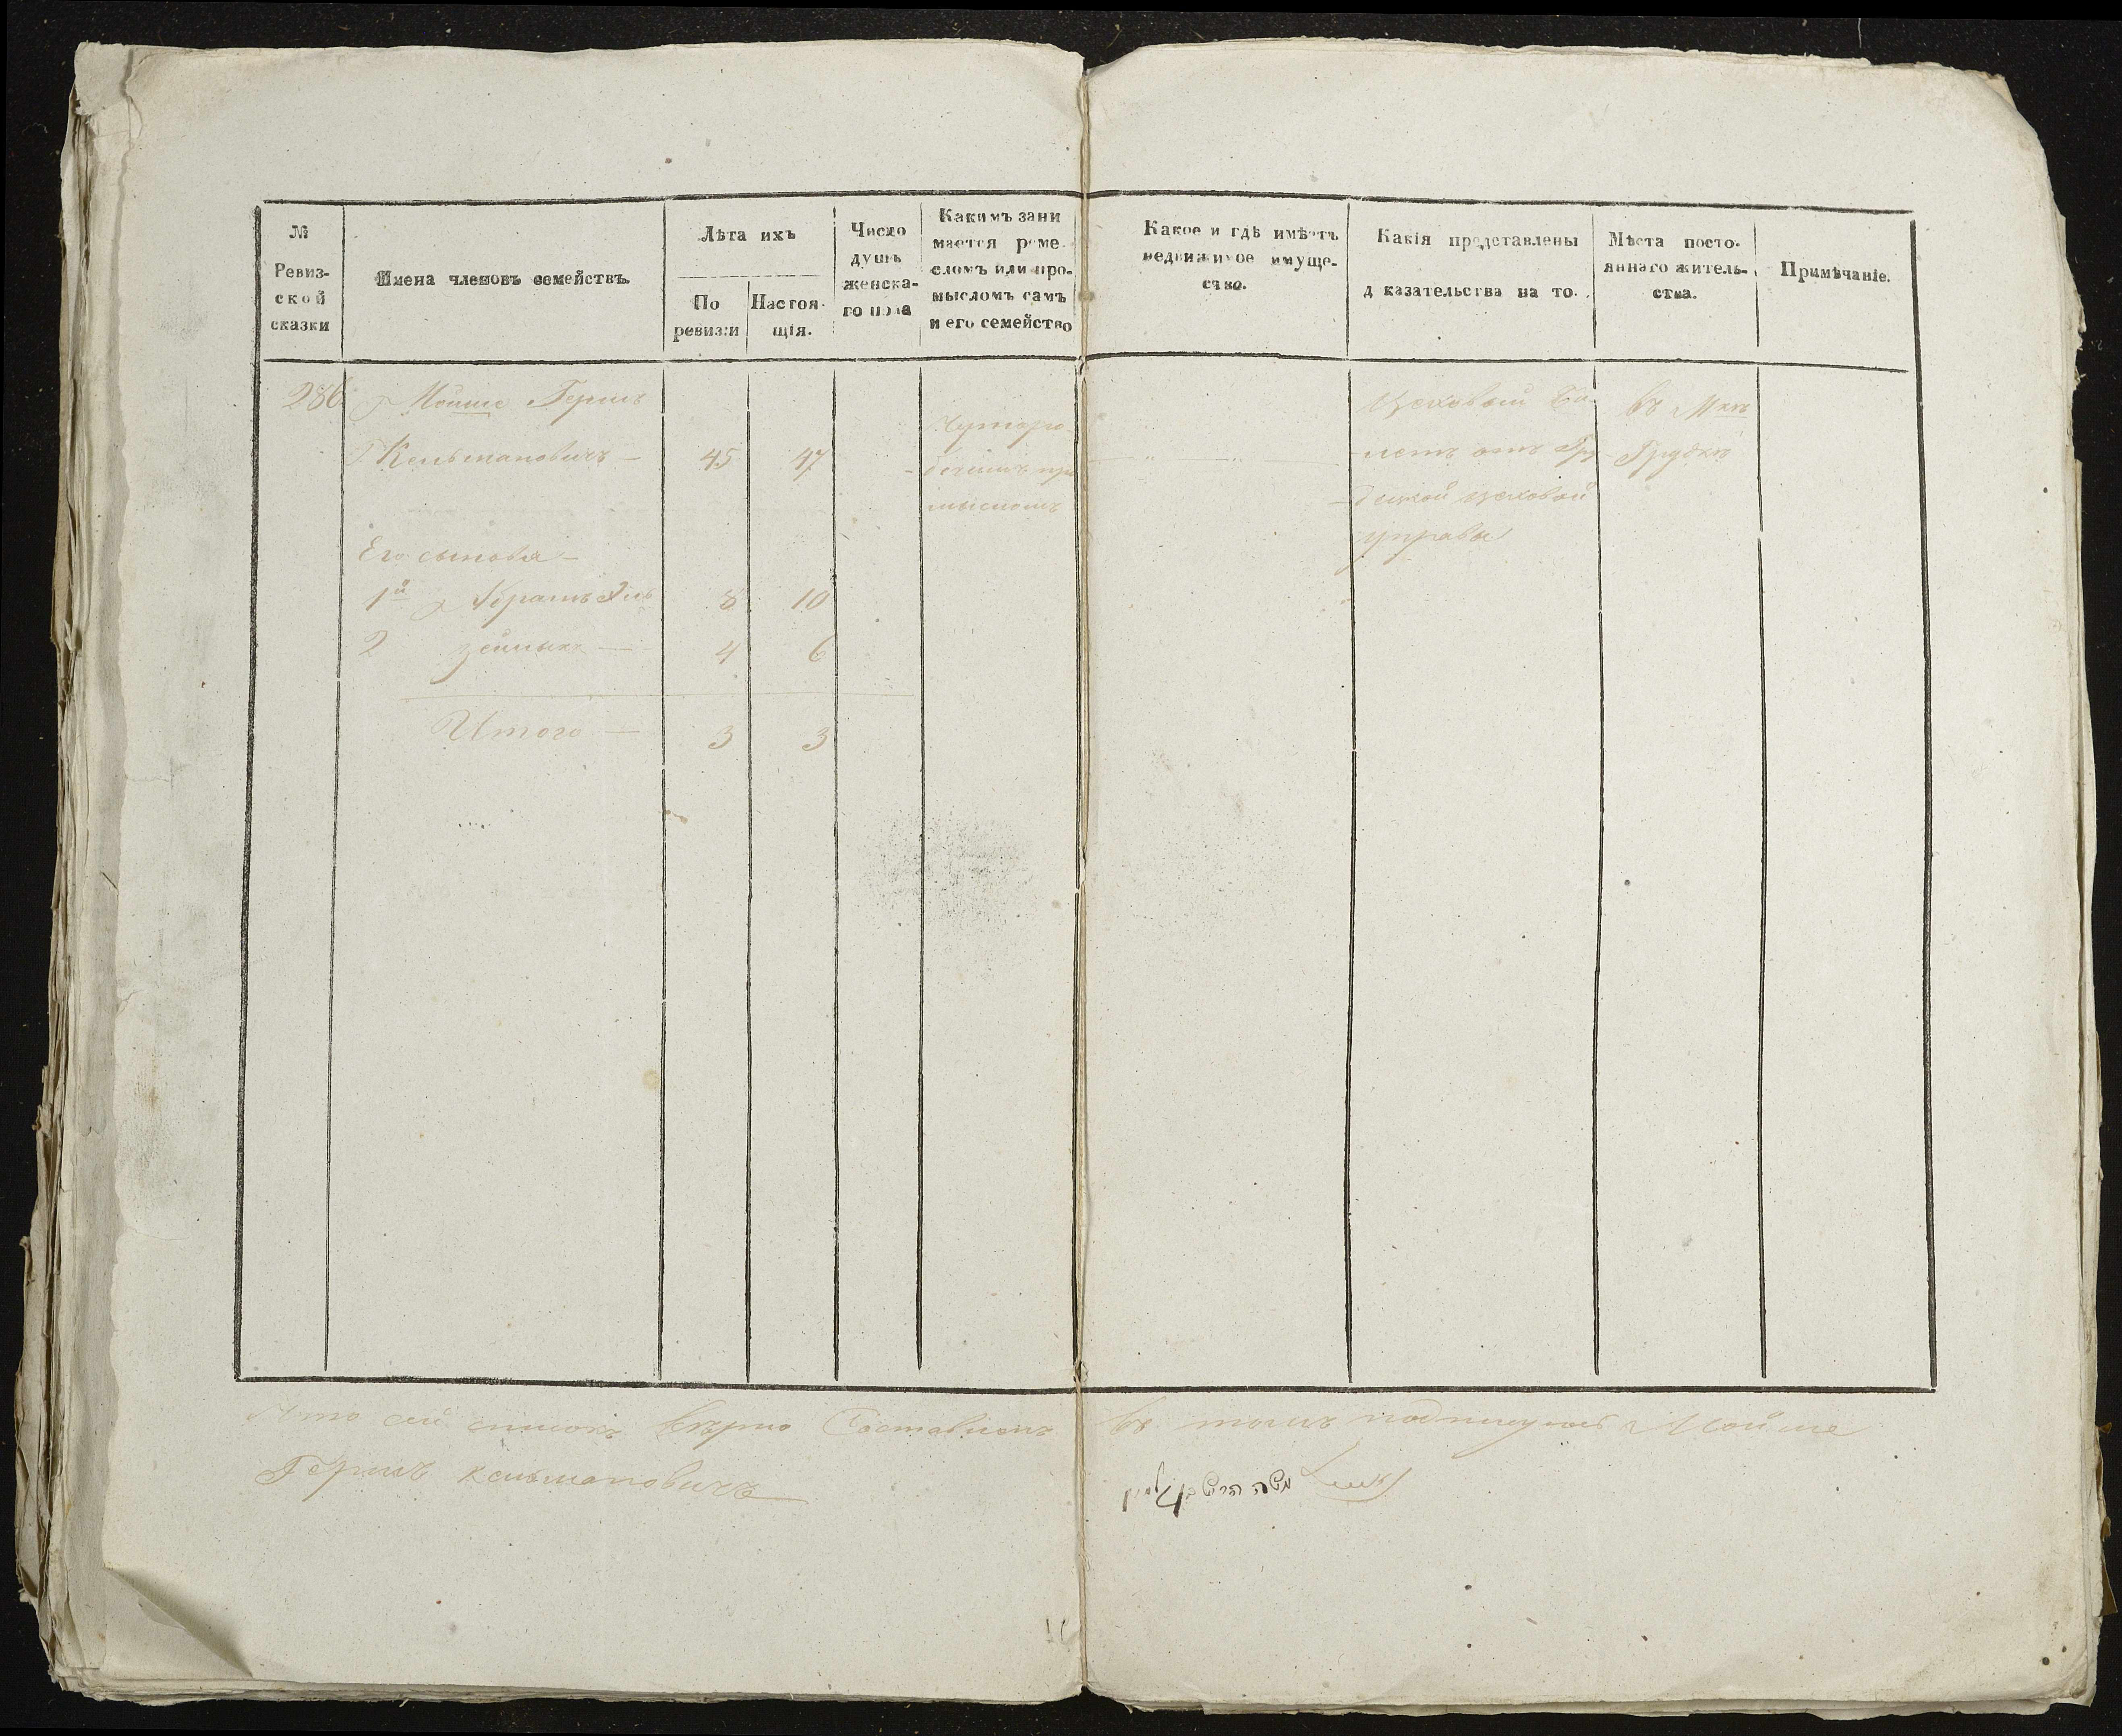 № Ревизской сказки
Имена членовъ семействъ.
Лѣта ихъ
По ревизіи
Настоящія.
Число душъ женскаго пола
Какимъ занимается ремесломъ или промысломъ самъ и его семейство
Какое и гдѣ имѣетъ недвижимое имущество.
Какія представлены доказательства на то.
Мѣста постояннаго жительства.
Примѣчаніе.
286 Мойше Гершъ
Кельмановичъ — 45 47
Его сынова —
1й Абрамъ 8 10
2 Зелманъ — 4 6
Итого — 3 3
мысломъ
Цеховый Би
летъ отъ Гру
децкой цеховой
управы
въ Мкъ
Грудкъ
Что сей списокъ вѣрно составленъ въ томъ подписуюсь Мойше
Гершъ Кельмановичъ
משה הירש בן קלמן